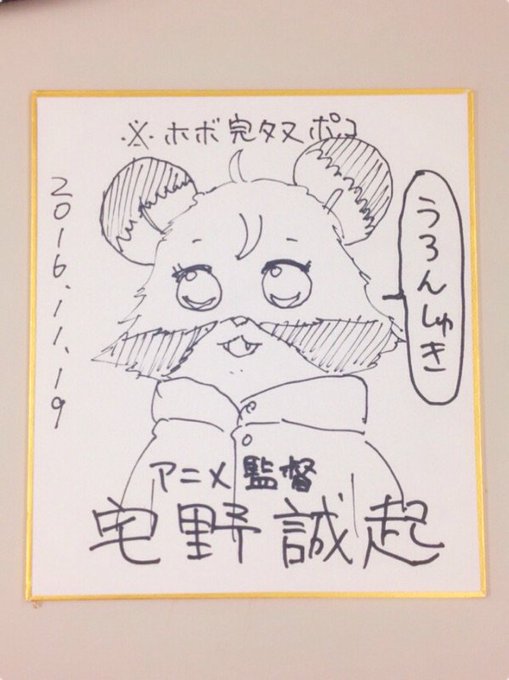 ※ホボ完タヌポコ
2016.11.19
うろんしゅき
アニメ監督
宅野誠起